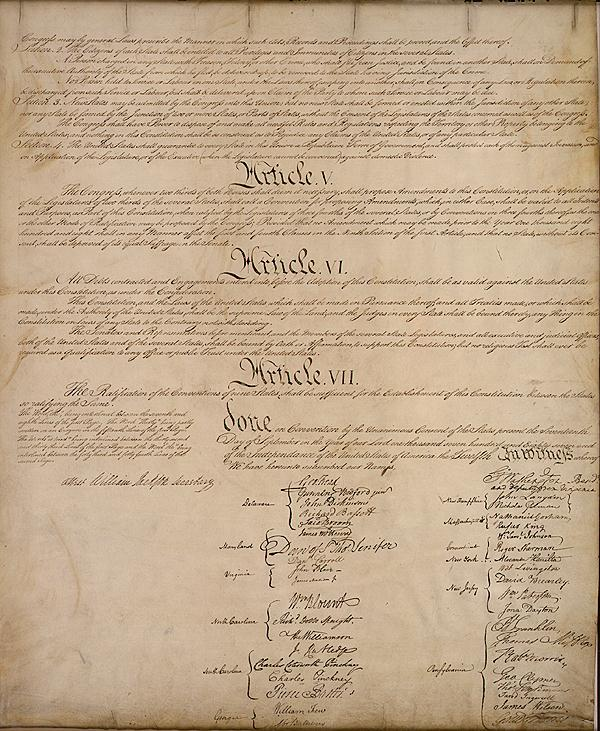 Congress may by general Laws prescribe the Manner in which such Acts, Records and Proceedings shall be proved, and the Effect thereof.
Section. 2. The Citizens of each State shall be entitled to all Privileges and Immunities of Citizens in the several States.
A Person charged in any State with Treason, Felony, or other Crime, who shall flee from Justice, and be found in another State, shall on Demand of
the executive Authority of the State from which he fled, be delivered up, to be removed to the State having Jurisdiction of the Crime.
No Person held to Service or Labour in one State, under the Laws thereof, escaping into another, shall, in Consequence of any Law or Regulation therein,
be discharged from such Service or Labour, but shall be delivered up on Claim of the Party to whom such Service or Labour may be due.
Section. 3. New States may be admitted by the Congress into this Union; but no new State shall be formed or erected within the Jurisdiction of any other State;
nor any State be formed by the Junction of two or more States, or Parts of States, without the Consent of the Legislatures of the States concerned as well as of the Congress.
The Congress shall have Power to dispose of and make all needful Rules and Regulations respecting the Territory or other Property belonging to the
United States; and nothing in this Constitution shall be so construed as to Prejudice any Claims of the United States, or of any particular State.
Section. 4. The United States shall guarantee to every State in this Union a Republican Form of Government, and shall protect each of them against Invasion; and
on Application of the Legislature, or of the Executive (when the Legislature cannot be convened) against domestic Violence.
Article. V.
The Congress, whenever two thirds of both Houses shall deem it necessary, shall propose Amendments to this Constitution, or, on the Application
of the Legislatures of two thirds of the several States, shall call a Convention for proposing Amendments, which, in either Case, shall be valid to all Intents
and Purposes, as Part of this Constitution, when ratified by the Legislatures of three fourths of the several States, or by Conventions in three fourths thereof, as the one
or the other Mode of Ratification may be proposed by the Congress; Provided that no Amendment which may be made prior to the Year One thousand eight
hundred and eight shall in any Manner affect the first and fourth Clauses in the Ninth Section of the first Article; and that no State, without its Con-
sent, shall be deprived of its equal Suffrage in the Senate.
Article. VI.
All Debts contracted and Engagements entered into, before the Adoption of this Constitution, shall be as valid against the United States
under this Constitution, as under the Confederation.
This Constitution, and the Laws of the United States which shall be made in Pursuance thereof; and all Treaties made, or which shall be
made, under the Authority of the United States, shall be the supreme Law of the Land; and the Judges in every State shall be bound thereby, any Thing in the
Constitution or Laws of any State to the Contrary notwithstanding.
The Senators and Representatives before mentioned, and the Members of the several State Legislatures, and all executive and judicial Officers,
both of the United States and of the several States, shall be bound by Oath or Affirmation, to support this Constitution; but no religious Test shall ever be
required as a Qualification to any Office or public Trust under the United States.
Article. VII.
The Ratification of the Conventions of nine States, shall be sufficient for the Establishment of this Constitution between the States
so ratifying the Same.
The Word, "the," being interlined between the seventh and
eighth Lines of the first Page,
The Words "is tried" being interlined between the thirty second
and thirty third Lines of the first Page and the Word "the" being
interlined between the forty third and forty fourth Lines of the
second Page.
Attest William Jackson Secretary
done in Convention by the Unanimous Consent of the States present the Seventeenth
Day of September in the Year of our Lord one thousand seven hundred and Eighty seven and
of the Independance of the United States of America the Twelfth In Witness whereof
We have hereunto subscribed our Names,
Delaware
Geo: Read
Gunning Bedford jun
John Dickinson
Richard Bassett
Jaco: Broom
Maryland
James McHenry
Dan of St Thos Jenifer
Danl Carroll
Virginia
John Blair
James Madison Jr.
North Carolina
Wm Blount
Richd Dobbs Spaight
Hu Williamson
South Carolina
J. Rutledge
Charles Cotesworth Pinckney
Charles Pinckney
Pierce Butler
Georgia
William Few
Abr Baldwin
Go Washington Presidt
and deputy from Virginia
New Hampshire
John Langdon
Nicholas Gilman
Massachusetts
Nathaniel Gorham
Rufus King
Connecticut
Wm Saml Johnson
Roger Sherman
New York
Alexander Hamilton
New Jersey
Wil: Livingston
David Brearley
Wm Paterson
Jona: Dayton
Pensylvania
B Franklin
Thomas Mifflin
Robt Morris
Geo. Clymer
Thos FitzSimons
Jared Ingersoll
James Wilson
Gouv Morris